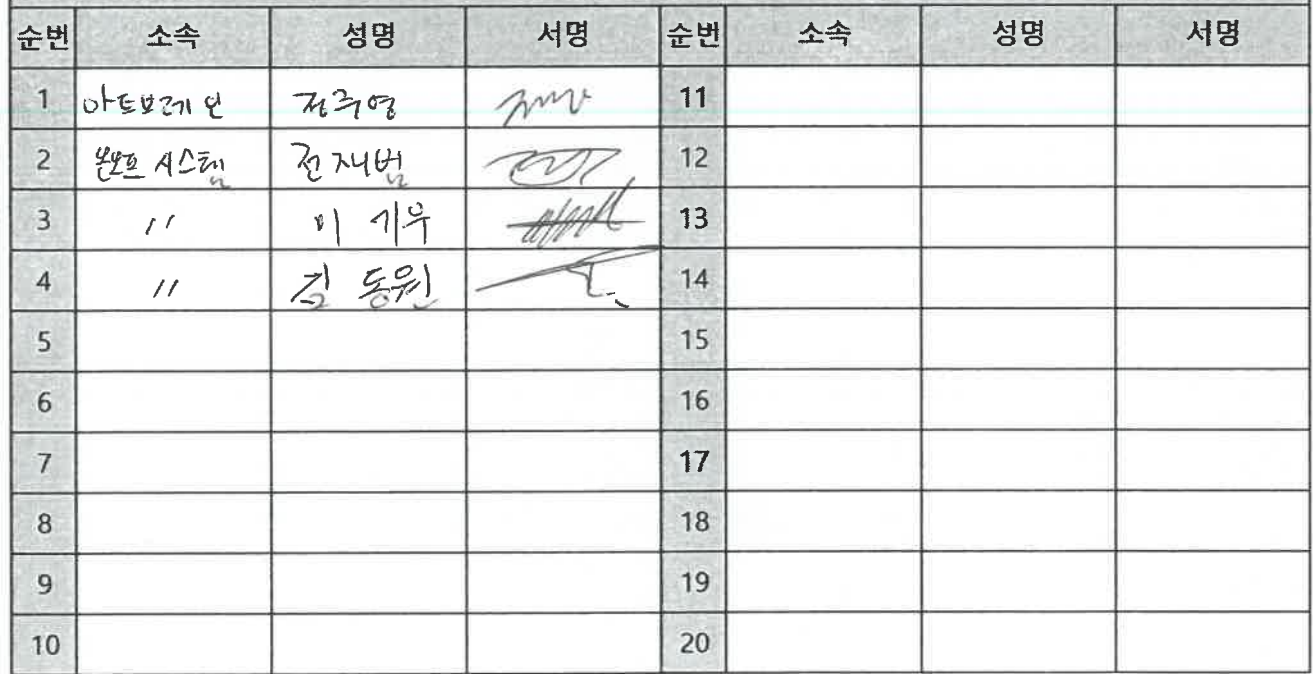 순번 소속 성명 서명 순번 소속 성명 서명
1 아트브레인 정주영 11
2 온오프 시스템 전재범 12
3 〃 이기우 13
4 〃 김동원 14
5 15
6 16
7 17
8 18
9 19
10 20